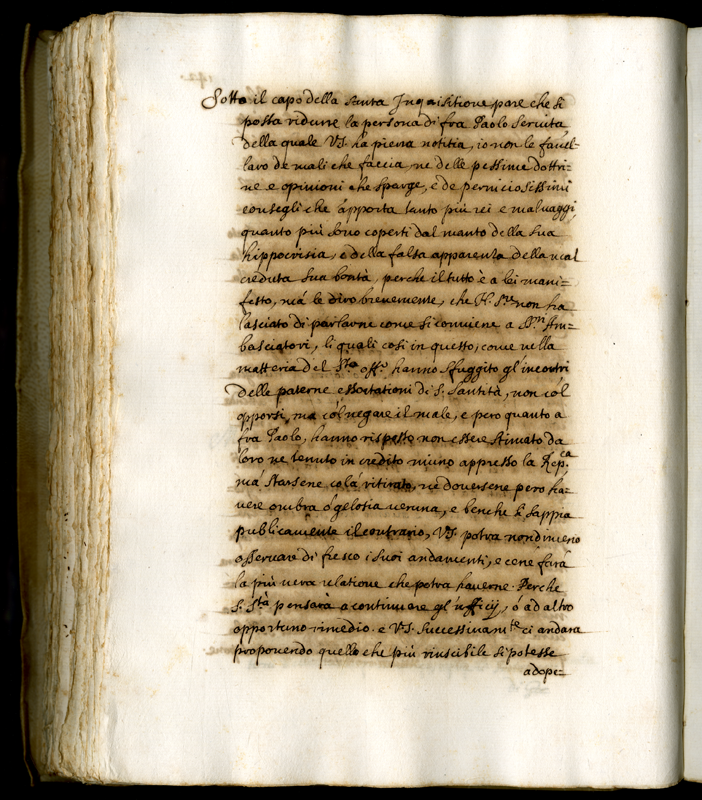 Sotto il capo della santa Inquisitione, pare che si
possa ridurre la persona di fra Paolo Servita,
della quale V.S. ha piena notitia, io non le favel-
laro de mali che faccia, ne delle pessime dottri-
ne e opinioni che sparge, e de perniciosissimi
consegli che apporta tanto più rei e malvaggi,
quanto più sono coperti dal manto della sua
hippocrisia, e della falsa apparenza della mal
creduta sua bontà, perche il tutto è a lei mani-
festo, má le diro brevemente, che N. S.re non ha
lasciato di parlarne come si conviene a S.ri Am-
basciatori, li quali cosi in questo, come nella
matteria del S.to Off.o hanno sfuggito gl'incontri
delle paterne essortationi di S. Santità, non col
opporsi, ma col negare il male, e pero quanto a
fra Paolo, hanno risposto non essere stimato da
loro ne tenuto in credito niuno appresso la Rep.ca
má starsene colà ritirato, ne doversene pero ha-
vere ombra ó gelosia veruna, e benche si sappia
publicamente il contrario, V.S. potrà nondimeno
osservare di fresco i suoi andamenti, e cene farà
la più vera relatione che potrà haverne. Perche
S. S.tà pensarà a continuare gl'ufficij, ó ad altro
opportuno rimedio. e V.S. successivam.te ci andara
proponendo quello che più riuscibile si potesse
adope-